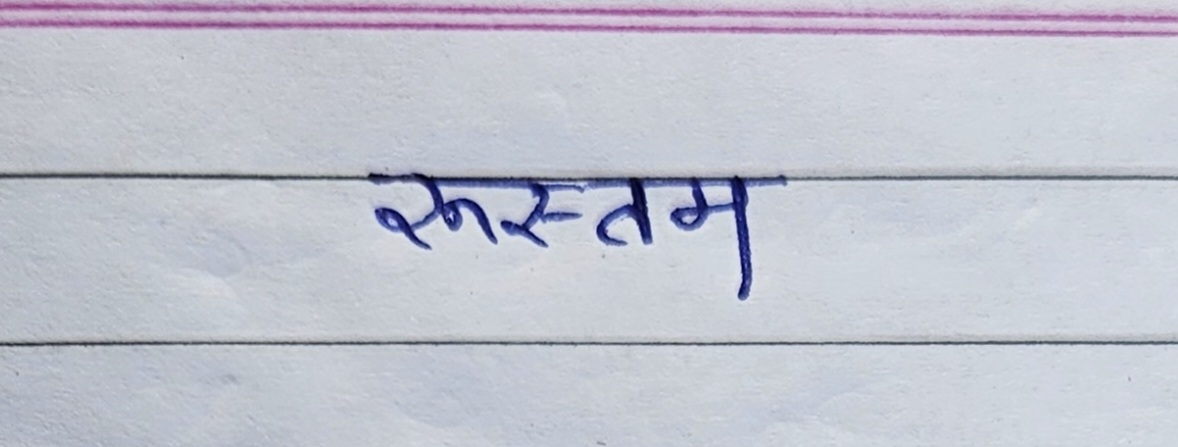 रूस्तम